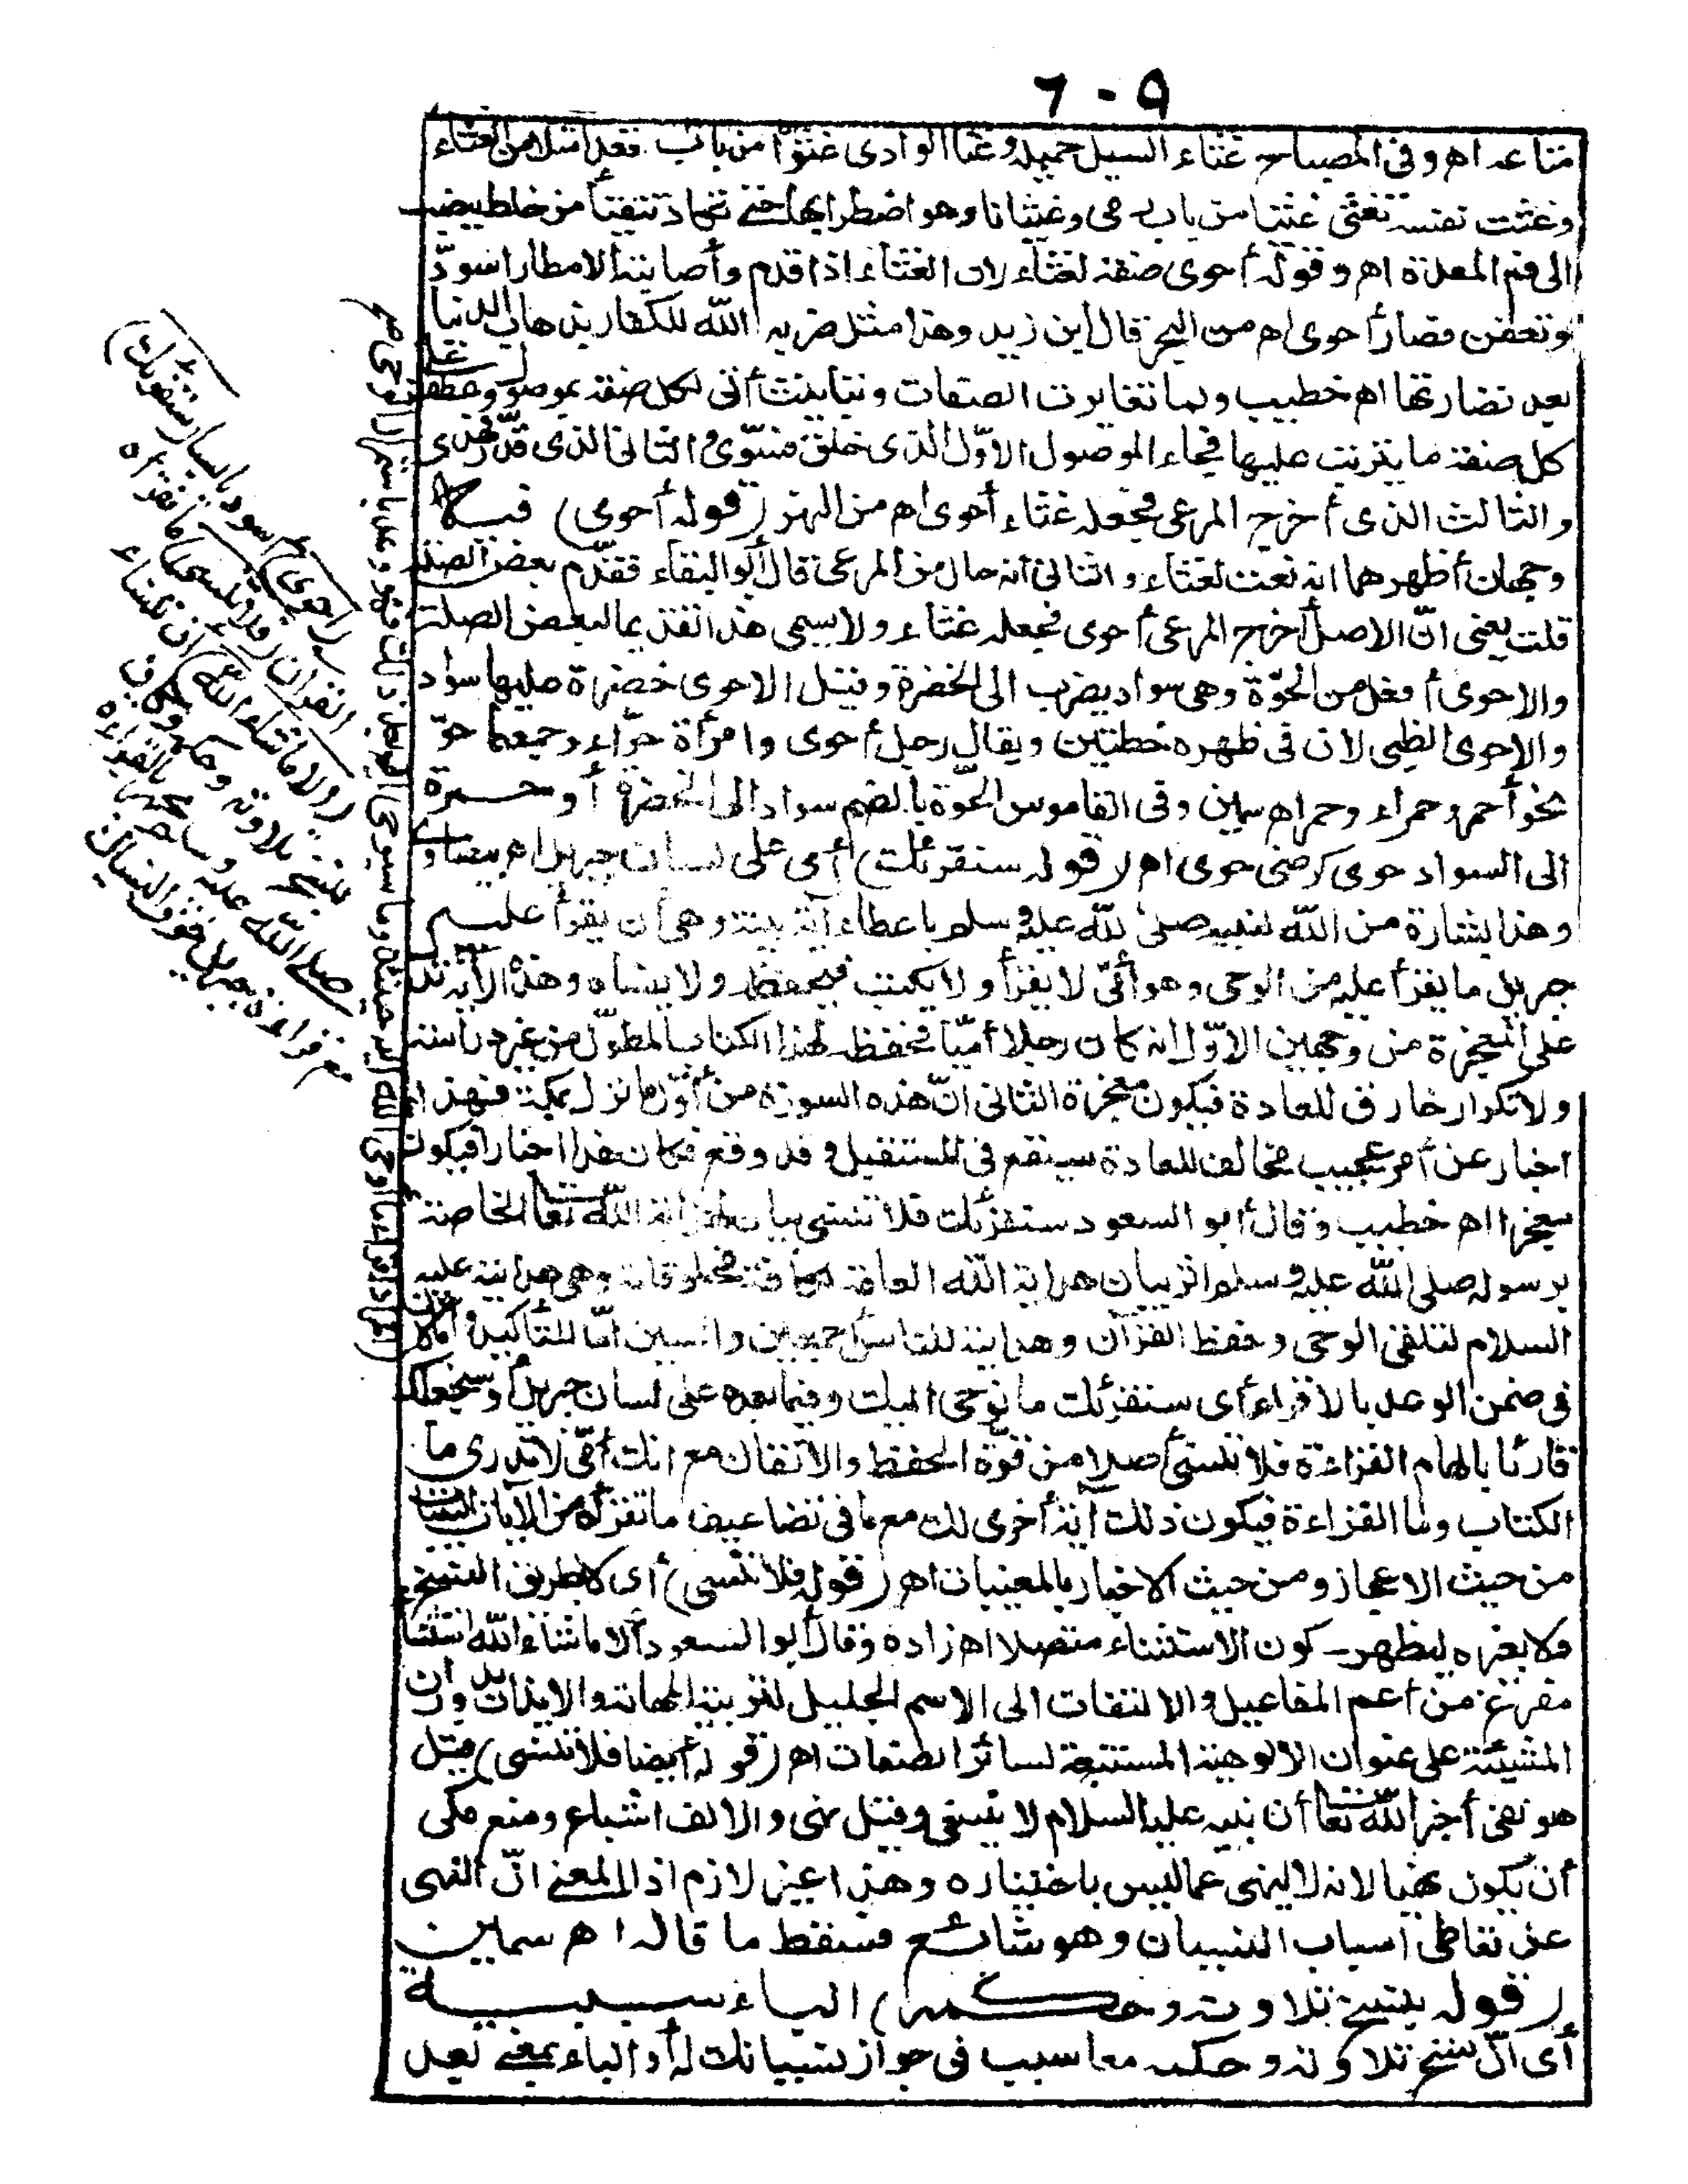 ٦٠٩
متاعه اه وفى المصباح غثاء السيل حميله وغثا الوادى غثوّا من باب قعد امتلأ من الغثاء
وغثت نفسه تغثى غثيا من باب رمى وغثيانا وهو اضطرابها حتى تكاد تتقيأ من خلط ينصب
الى فم المعدة اه وقوله أحوى صفة لغثاء لان الغثاء اذا قدم وأصابته الامطار اسودّ
وتعفن فصار أحوى اه من البحر قال ابن زيد وهذا مثل ضربه الله للكفار بذهاب الدنيا
بعد نضارتها اه خطيب ولما تغايرت الصفات وتباينت أتى لكل صفة بموصول وعطف على
كل صفة ما يترتب عليها فجاء الموصول الاوّل الذى خلق فسوّى والثانى الذى قدّر فهدى
والثالث الذى أخرج المرعى فجعله غثاء أحوى اه من النهر (قوله أحوى) فيه
وجهان أظهرهما انه نعت لغثاء والثانى أنه حال من المرعى قال أبو البقاء فقدّم بعض الصلة
قلت يعنى انّ الاصل أخرج المرعى أحوى فجعله غثاء ولا يسمى هذا تقديما لبعض الصلة
والاحوى أفعل من الحوّة وهى سواد يضرب الى الخضرة وقيل الاحوى خضرة عليها سواد
والاحوى الظبى لان فى ظهره خطتين ويقال رجل أحوى وامرأة حوّاء وجمعهما حوّ
نحو أحمر وحمراء وحمر اه سمين وفى القاموس الحوّة بالضم سواد الى الخضرة أو حمرة
الى السواد حوى كرضى حوى اه (قوله سنقرئك) أى على لسان جبريل اه بيضاوى
وهذا بشارة من الله لنبيه صلى الله عليه وسلم باعطاء آية بينة وهى أن يقرأ عليه
جبريل ما يقرأ عليه من الوحى وهو أمّى لا يقرأ ولا يكتب فيحفظه ولا ينساه وهذه الآية تدل
على المعجزة من وجهين الاوّل انه كان رجلا أمّيا فحفظه لهذا الكتاب المطوّل من غير دراسة
ولا تكرار خارق للعادة فيكون معجزة الثانى انّ هذه السورة من أوّل ما نزل بمكة فهذا
اخبار عن أمر عجيب مخالف للعادة سيقع فى المستقبل وقد وقع فكان هذا اخبارا فيكون
معجزا اه خطيب وقال أبو السعود سنقرئك فلا تنسى بيان لهداية الله تعالى الخاصة
برسوله صلى الله عليه وسلم اثر بيان هداية الله العامة لكافة مخلوقاته وهى هدايته عليه
السلام لتلقى الوحى وحفظ القرآن وهدايته للناس أجمعين والسين امّا للتأكيد وامّا لان
فى ضمن الوعد بالاقراء أى سنقرئك ما نوحى اليك وفيما بعده على لسان جبريل أو سنجعلك
قارئا بالهام القراءة فلا تنسى أصلا من قوّة الحفظ والاتقان مع انك أمّى لا تدرى ما
الكتاب وما القراءة فيكون ذلك آية أخرى لك مع ما فى تضاعيف ما تقرأه من الآيات البينات
من حيث الاعجاز ومن حيث الاخبار بالمغيبات اه (قوله فلا تنسى) أى لا بطريق النسخ
ولا بغيره ليظهر كون الاستثناء متصلا اه زاده وقال أبو السعود الا ما شاء الله استثناء
مفرغ من أعم المفاعيل والالتفات الى الاسم الجليل لتربية المهابة والايذان بدوران
المشيئة على عنوان الالوهية المستتبعة لسائر الصفات اه (قوله أيضا فلا تنسى) قيل
هو نفى أخبر الله تعالى أن نبيه عليه السلام لا ينسى وقيل نهى والالف اشباع ومنع مكى
أن يكون نهيا لانه لا ينهى عما ليس باختياره وهذا غير لازم اذ المعنى انّ النهى
عن تعاطى أسباب النسيان وهو شائع فسقط ما قاله اه سمين
(قوله بنسخ تلاوته وحكمه) الباء سببية
أى انّ نسخ تلاوته وحكمه معا سبب فى جواز نسيانك له أو الباء بمعنى بعد
(أحوى) أسود يابسا (سنقرئك)
القرآن (فلا تنسى) ما تقرؤه
(الا ما شاء الله) أن تنساه
بنسخ تلاوته وحكمه وكان
صلى الله عليه وسلم يجهر بالقراءة
مع قراءة جبريل خوف النسيان